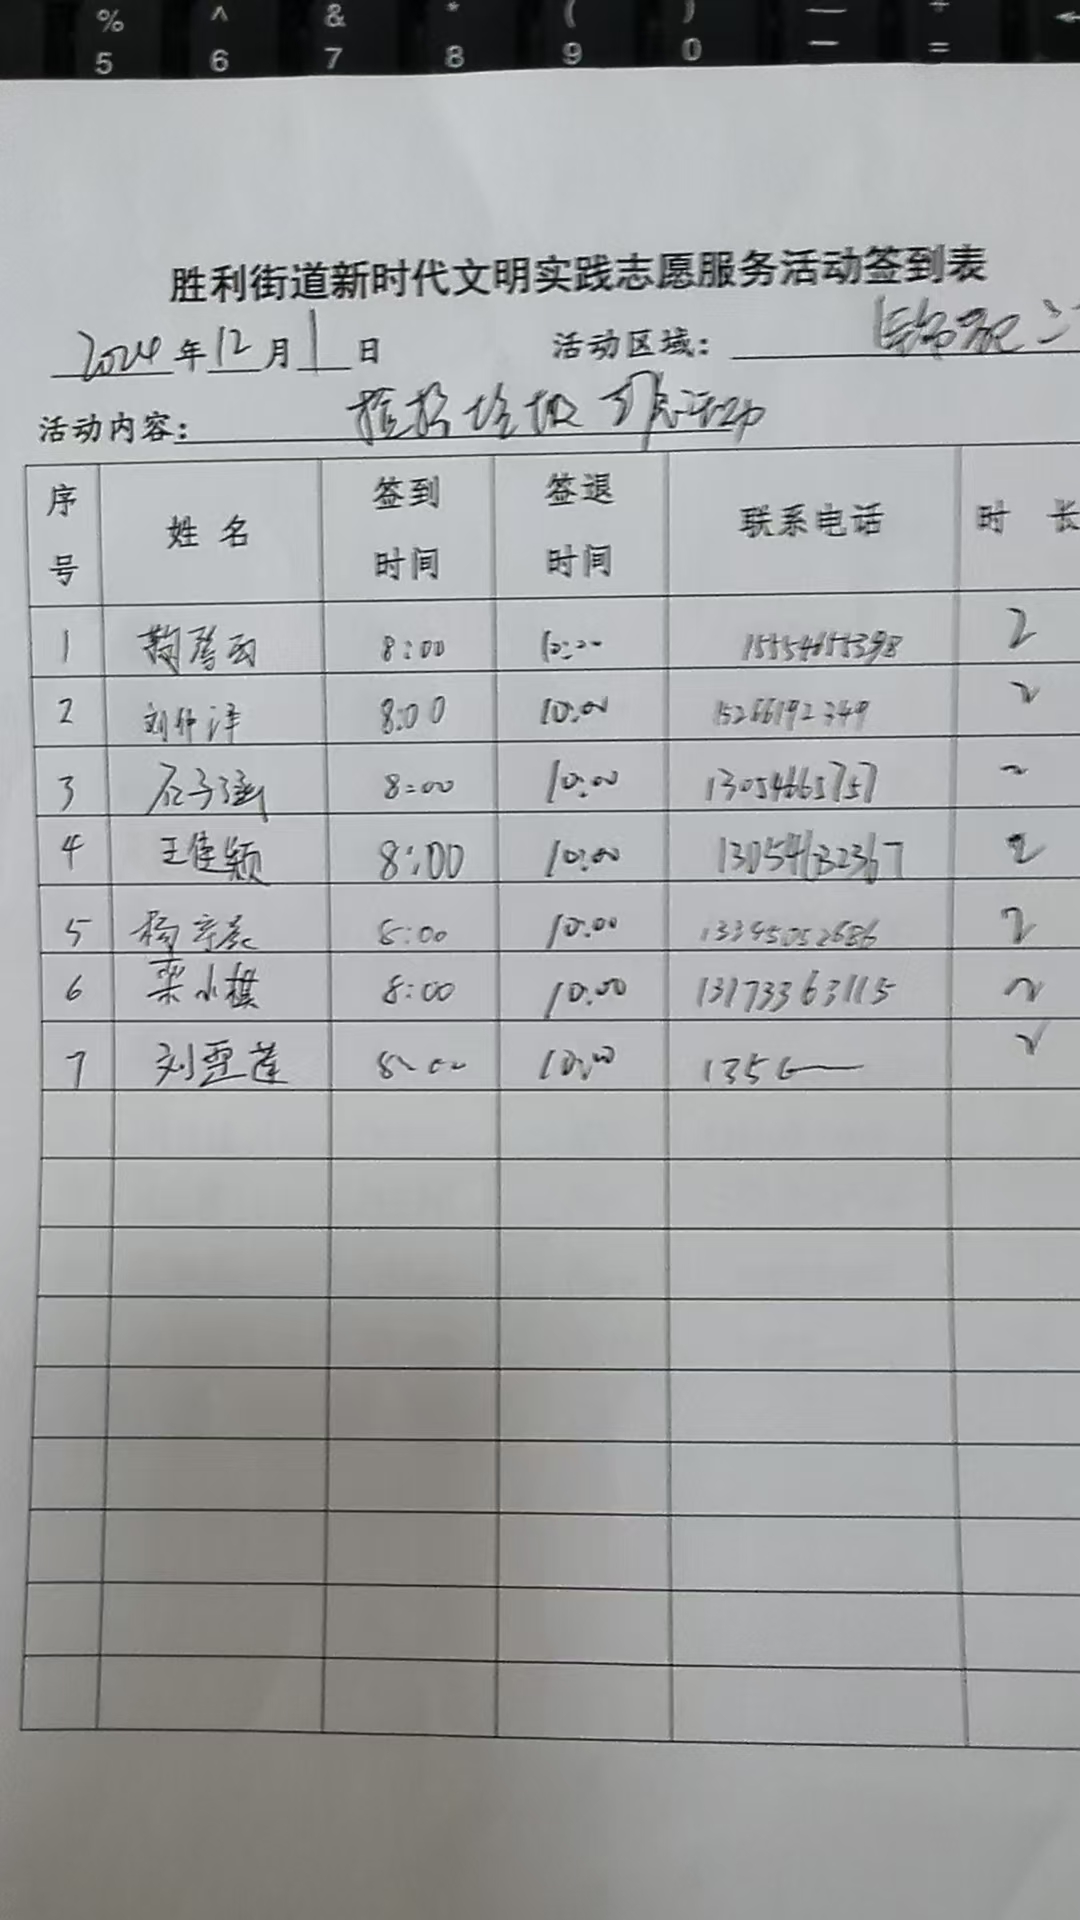 % ^ & * ( ) — +
5 6 7 8 9 0 − =
胜利街道新时代文明实践志愿服务活动签到表
2024年12月1日 活动区域:
活动内容: 捡拾垃圾 活动
序号 姓名 签到时间 签退时间 联系电话 时长
1 8:00 10:00 2
2 刘 泽 8:00 10:00 15266192349 2
3 石子涵 8:00 10:00 13054665757 2
4 王佳颖 8:00 10:00 13054632367 2
5 杨 8:00 10:00 13345052686 2
6 栾小棋 8:00 10:00 13173363115 2
7 刘亚莲 8:00 10:00 135 2